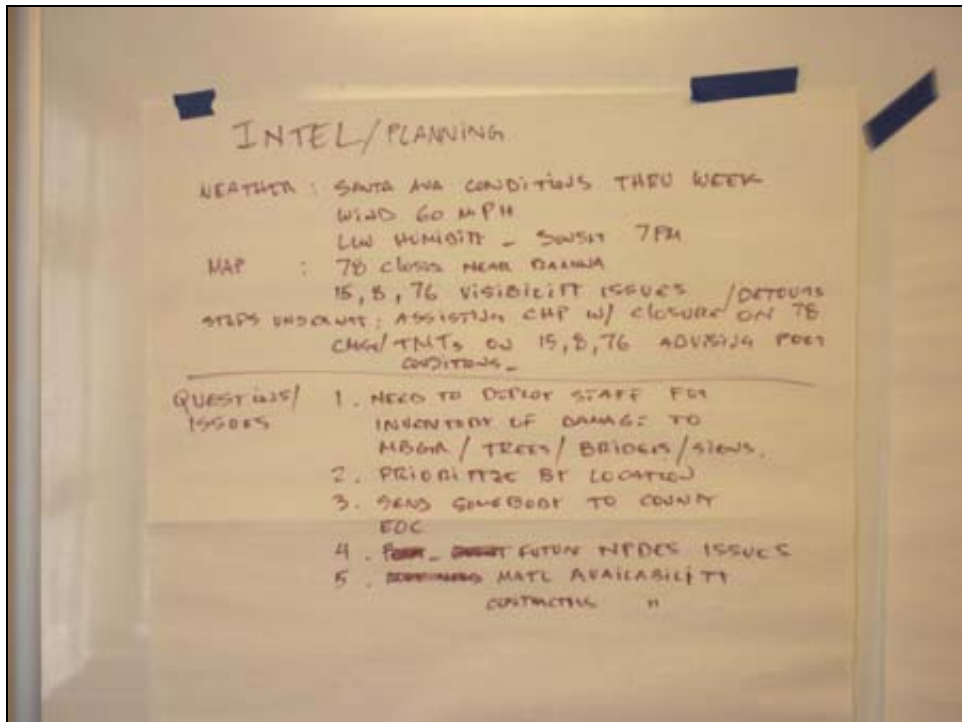 INTEL/PLANNING
WEATHER : SANTA ANA CONDITIONS THRU WEEK
WIND 60 MPH
LOW HUMIDITY - SUNSET 7PM
MAP : 78 CLOSED NEAR RAMONA
15, 8, 76 VISIBILITY ISSUES
STEPS UNDERWAY : ASSISTING CHP W/ CLOSURE/DETOURS ON 78
CMS/TMTs ON 15, 8, 76 ADVISING POOR
CONDITIONS -
QUESTIONS/
ISSUES
1. NEED TO DEPLOY STAFF FOR
INVENTORY OF DAMAGE TO
MBGR / TREES / BRIDGES / SIGNS.
2. PRIORITIZE BY LOCATION
3. SEND SOMEBODY TO COUNTY
EOC
4. FUTURE NPDES ISSUES
5. MATL AVAILABILITY
CONTRACTORS "